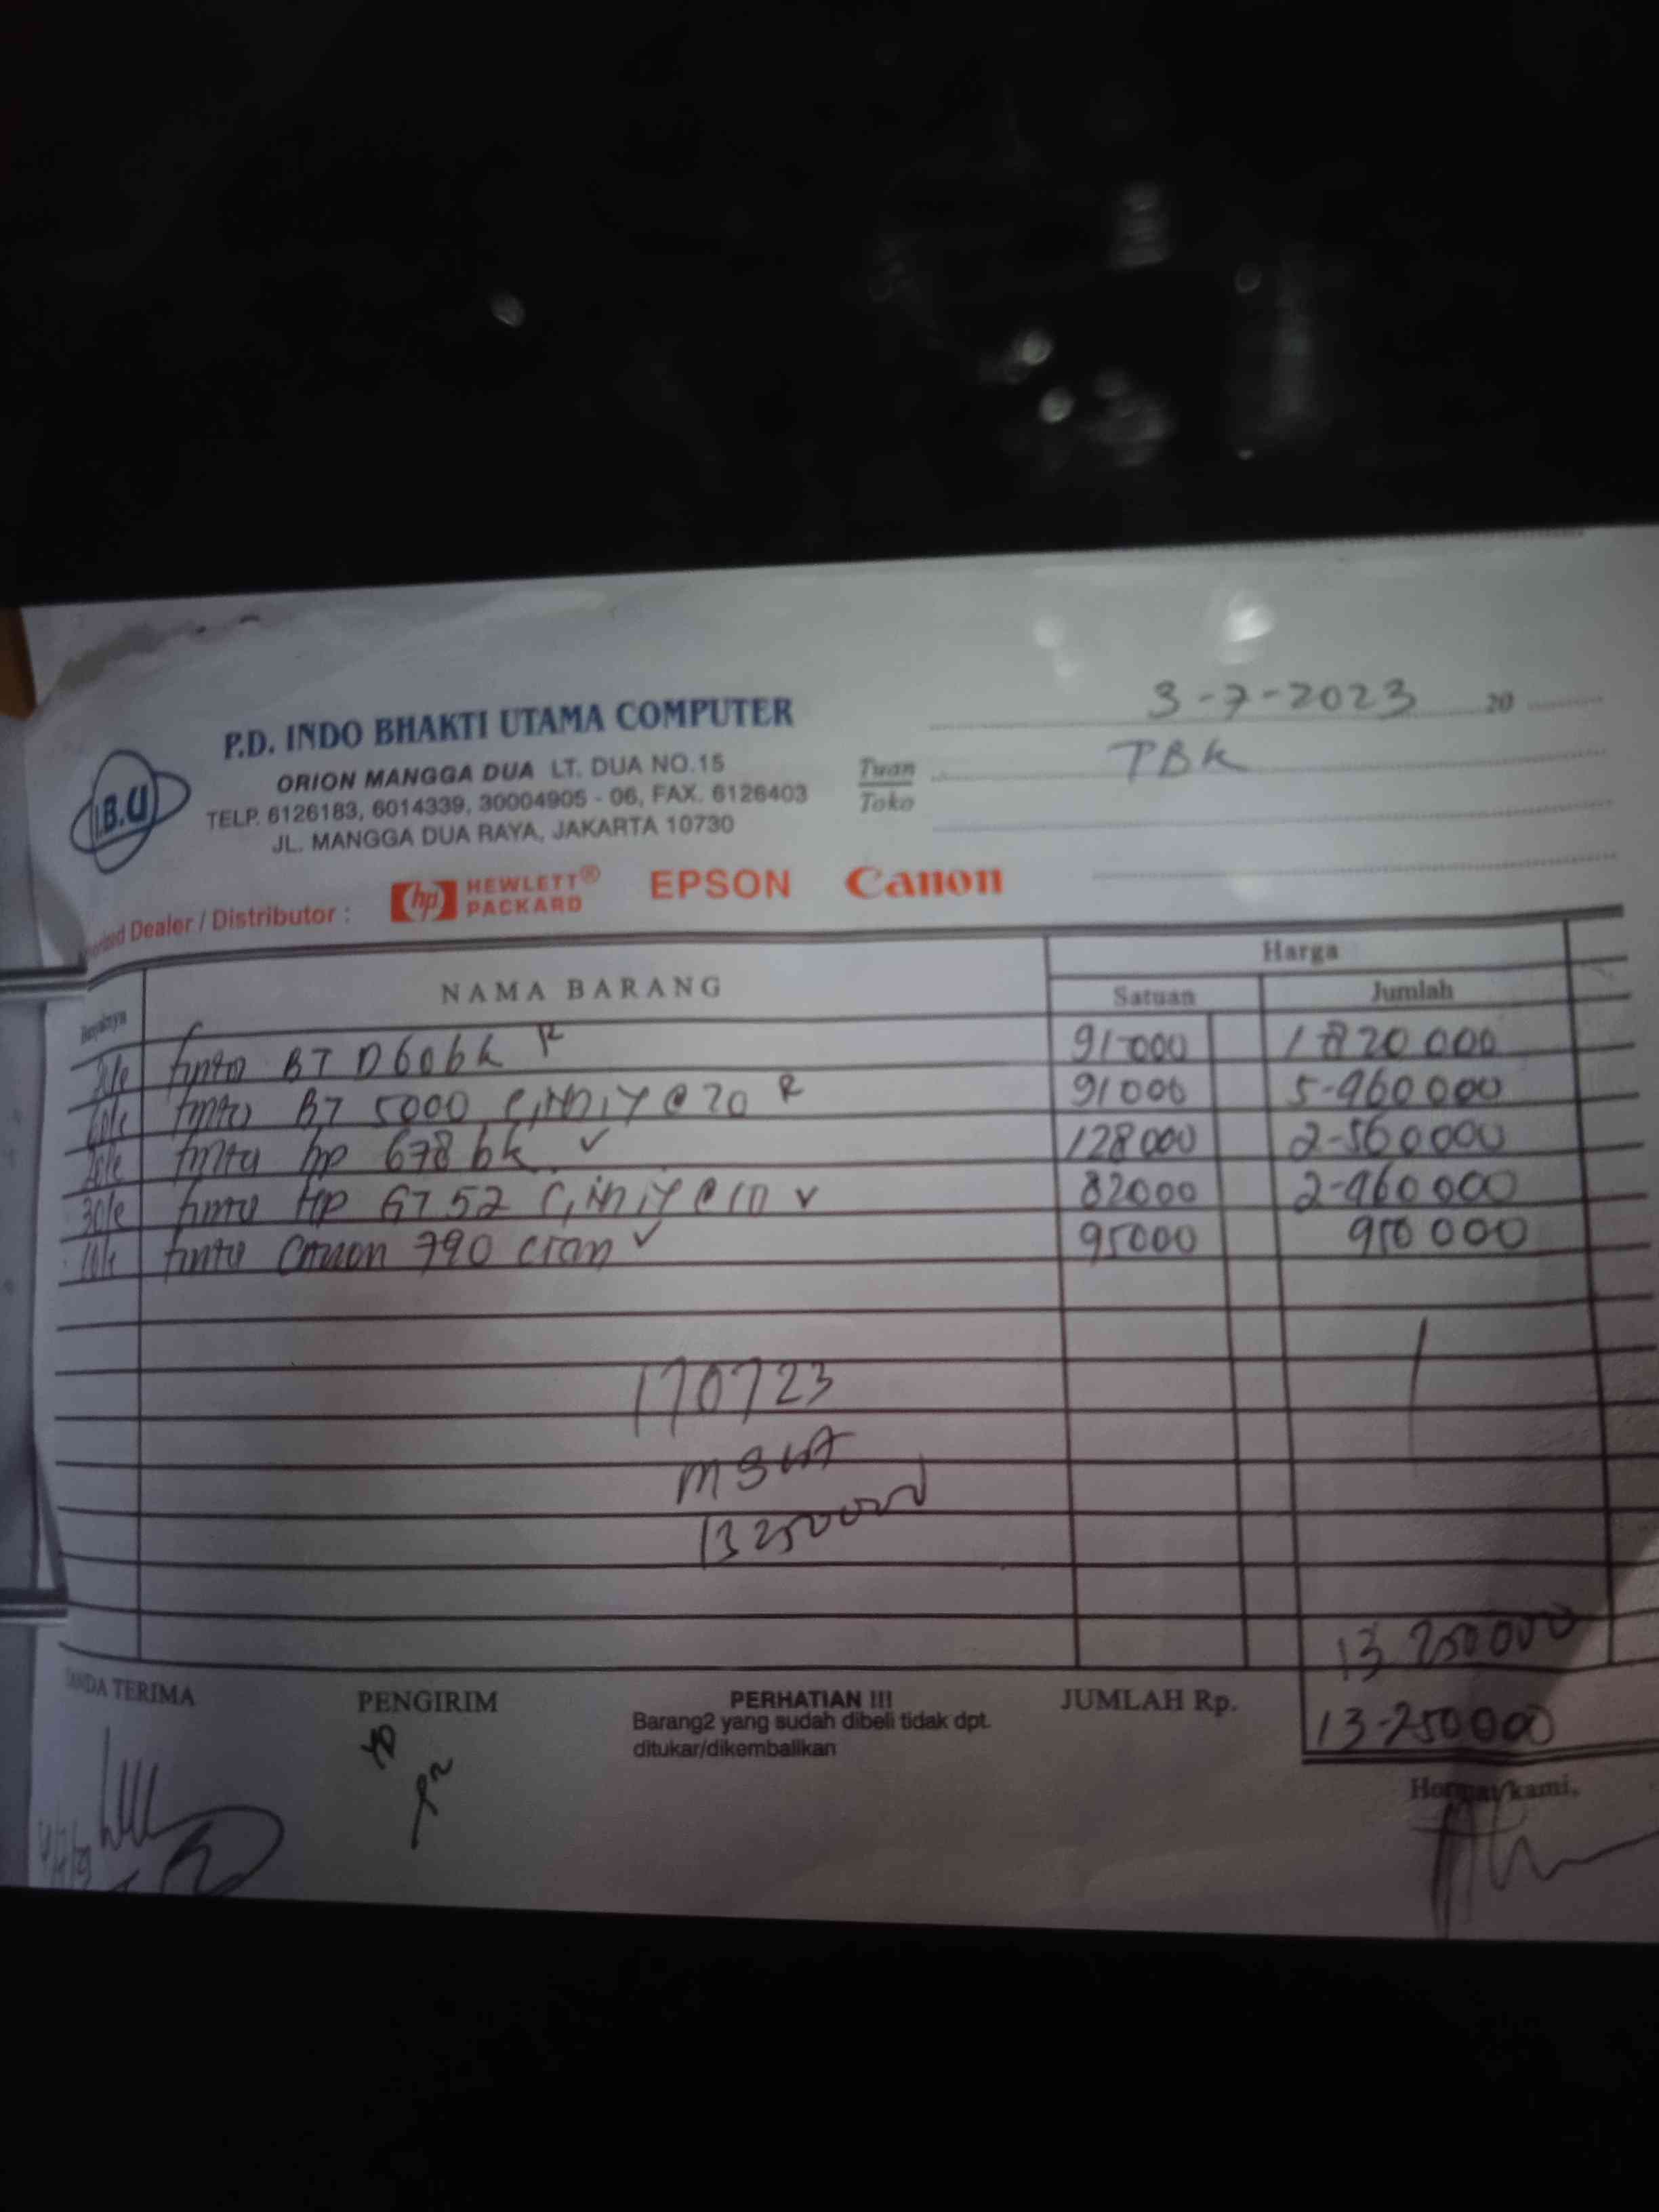 P.D. INDO BHAKTI UTAMA COMPUTER
ORION MANGGA DUA LT. DUA NO.15
TELP. 6126183, 6014339, 30004905 - 06, FAX. 6126403
JL. MANGGA DUA RAYA, JAKARTA 10730
I.B.U
3-7-2023 20
Tuan TBK
Toko
Dealer / Distributor : hp HEWLETT® PACKARD EPSON Canon
NAMA BARANG Harga
Satuan Jumlah
tinta BT D60bk R 91000 1820000
tinta BT 5000 C,M,Y @20 R 91000 5-460000
tinta hp 678 bk ✓ 128000 2-560000
30 tinta Hp GT 52 C,M,Y @10 ✓ 82000 2-460000
10 tinta Canon 790 cian ✓ 95000 950000
170723
13250000
13 250000
TANDA TERIMA PENGIRIM PERHATIAN !!! JUMLAH Rp. 13-250000
Barang2 yang sudah dibeli tidak dpt.
ditukar/dikembalikan
Hormat kami,